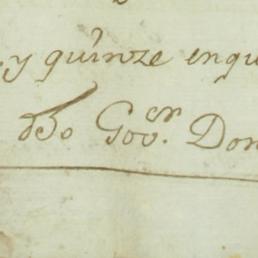 y quinze enqu
dho Gov.or Don